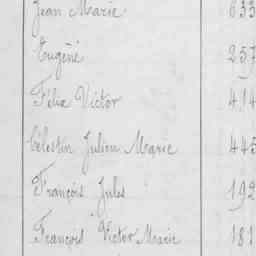 Jean Marie 633
Eugène 257
Félix Victor 414
Célestin Julien Marie 445
François Jules 192
François Victor Marie 181